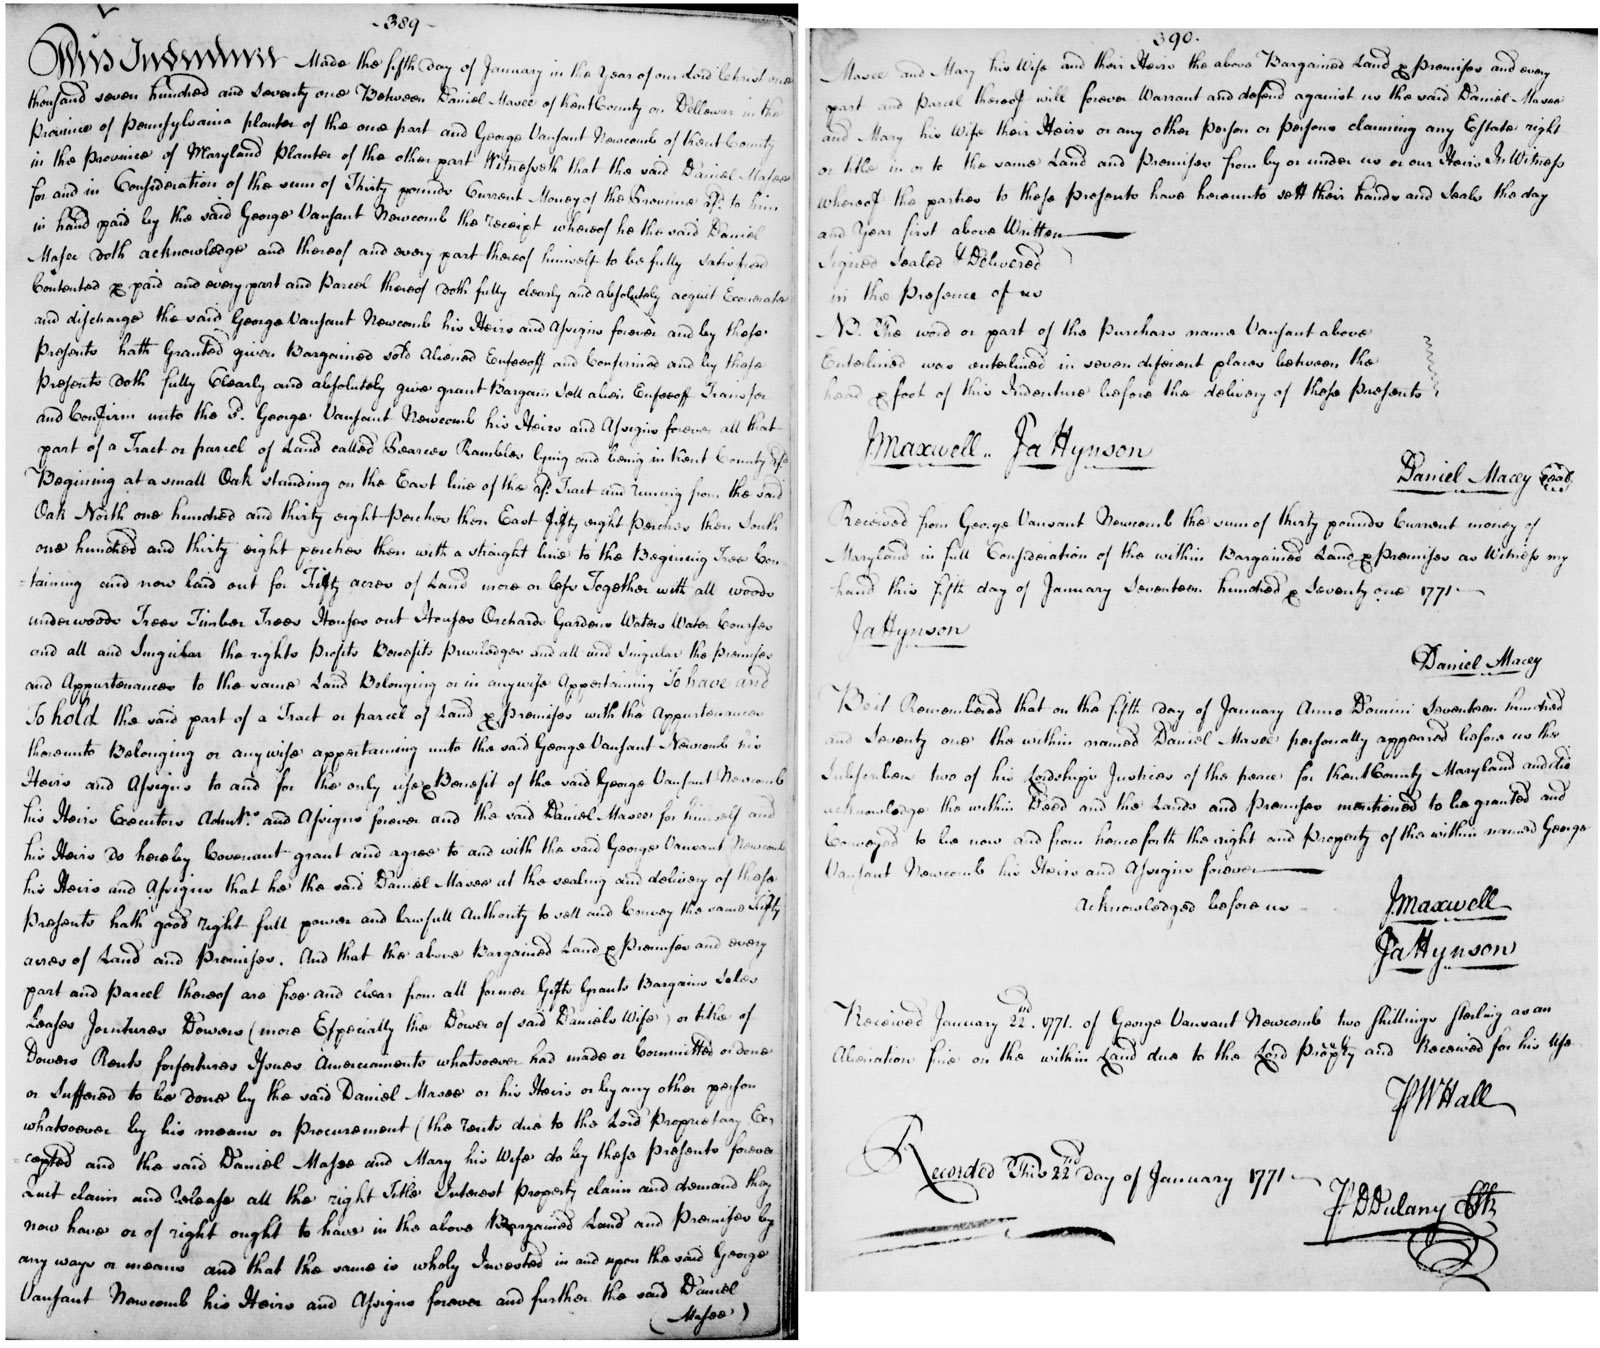 -389-
This Indenture Made the fifth day of January in the Year of our Lord Christ one
thousand seven hundred and seventy one Between Daniel Masee of Kent County on Dellewar in the
Province of Pennsylvania planter of the one part and George Vansant Newcomb of Kent County
in the Province of Maryland Planter of the other part Witnesseth that the said Daniel Masee
for and in Consideration of the sum of Thirty pounds Current Money of the Province afs.d to him
in hand paid by the said George Vansant Newcomb the receipt whereof he the said Daniel
Masee doth acknowledge and thereof and every part thereof himself to be fully satisfied
Contented & paid and every part and Parcel thereof doth fully clearly and absolutely acquit Exonerate
and discharge the said George Vansant Newcomb his Heirs and Assigns forever and by these
Presents hath Granted given Bargained sold Aliened Enfeoff and Confirmed and by these
Presents doth fully Clearly and absolutely give grant Bargain Sell alien Enfeoff Transfer
and Confirm unto the s.d George Vansant Newcomb his Heirs and Assigns forever all that
part of a Tract or parcel of Land called Pearces Rambles lying and being in Kent County afs.d
Begining at a small Oak standing on the East line of the afs.d Tract and runing from the said
Oak North one hundred and thirty eight perches then East fifty eight perches then South
one hundred and thirty eight perches then with a straight line to the Begining Tree Con
=taining and now laid out for Fifty acres of Land more or less Together with all woods
underwoods Trees Timber Trees Houses out Houses Orchards Gardens Waters Water Courses
and all and Singular the rights Profits Benefits priviledges and all and Singular the premises
and Appurtenances to the same Land Belonging or in anywise Appertaining To have and
To hold the said part of a Tract or parcel of Land & Premises with the Appurtenances
thereunto Belonging or any wise appertaining unto the said George Vansant Newcomb his
Heirs and Assigns to and for the only use & Benefit of the said George Vansant Newcomb
his Heirs Executors Admrs. and Assigns forever and the said Daniel Masee for himself and
his Heirs do hereby Covenant grant and agree to and with the said George Vansant Newcomb
his Heirs and Assigns that he the said Daniel Masee at the sealing and delivery of these
Presents hath good right full power and lawfull Authority to sell and Convey the same fifty
acres of Land and Premises. And that the above Bargained Land & Premises and every
part and Parcel thereof are free and clear from all former Gifts Grants Bargains Sales
Leases Jointures Dowers (more Especially the Dower of said Daniels Wife) or title of
Dowers Rents forfeitures Issues Amerciaments whatsoever had made or Committed or done
or Suffered to be done by the said Daniel Masee or his Heirs or by any other person
whatsoever by his means or Procurement (the rents due to the Lord Proprietary Ex=
=cepted and the said Daniel Masee and Mary his Wife do by these Presents forever
Quit claim and release all the right Title Interest Property claim and demand they
now have or of right ought to have in the above Bargained Land and Premises by
any ways or means and that the same is wholy Invested in and upon the said George
Vansant Newcomb his Heirs and Assigns forever and further the said Daniel
(Masee)
390.
Masee and Mary his Wife and their Heirs the above Bargained Land & Premises and every
part and parcel thereof will forever Warrant and defend against us the said Daniel Masee
and Mary his Wife their Heirs or any other Person or Persons claiming any Estate right
or title in or to the same Land and Premises from by or under us or our Heirs In Witness
whereof the parties to these Presents have hereunto sett their hands and Seals the day
and Year first above Written
Signed Sealed & Delivered
in the Presence of us
NB. The word or part of the Purchars name Vansant above
Enterlined was enterlined in seven diferent places between the
head & foot of this Indenture before the delivery of these Presents
J Maxwell.. Ja Hynson
Daniel Macey Seal
Received from George Vansant Newcomb the sum of thirty pounds Current money of
Maryland in full Consideration of the within Bargained Land & Premises as Witness my
hand this fifth day of January Seventeen hundred & Seventy one 1771
Ja Hynson
Daniel Macey
Be it Remembered that on the fifth day of January Anno Domini Seventeen hundred
and Seventy one the within named Daniel Masee personally appeared before us the
Subscribers two of his Lordships Justices of the peace for Kent County Maryland and did
acknowledge the within Deed and the Lands and Premises mentioned to be granted and
Conveyed to be now and from henceforth the right and Property of the within named George
Vansant Newcomb his Heirs and Assigns forever
Acknowledged before us
J Maxwell
Ja Hynson
Received January 22nd. 1771. of George Vansant Newcomb two Shillings Sterling as an
Alienation fine on the within Land due to the Lord Propriety and Received for his Use
Hall
Recorded This 22nd day of January 1771
Dulany Clk